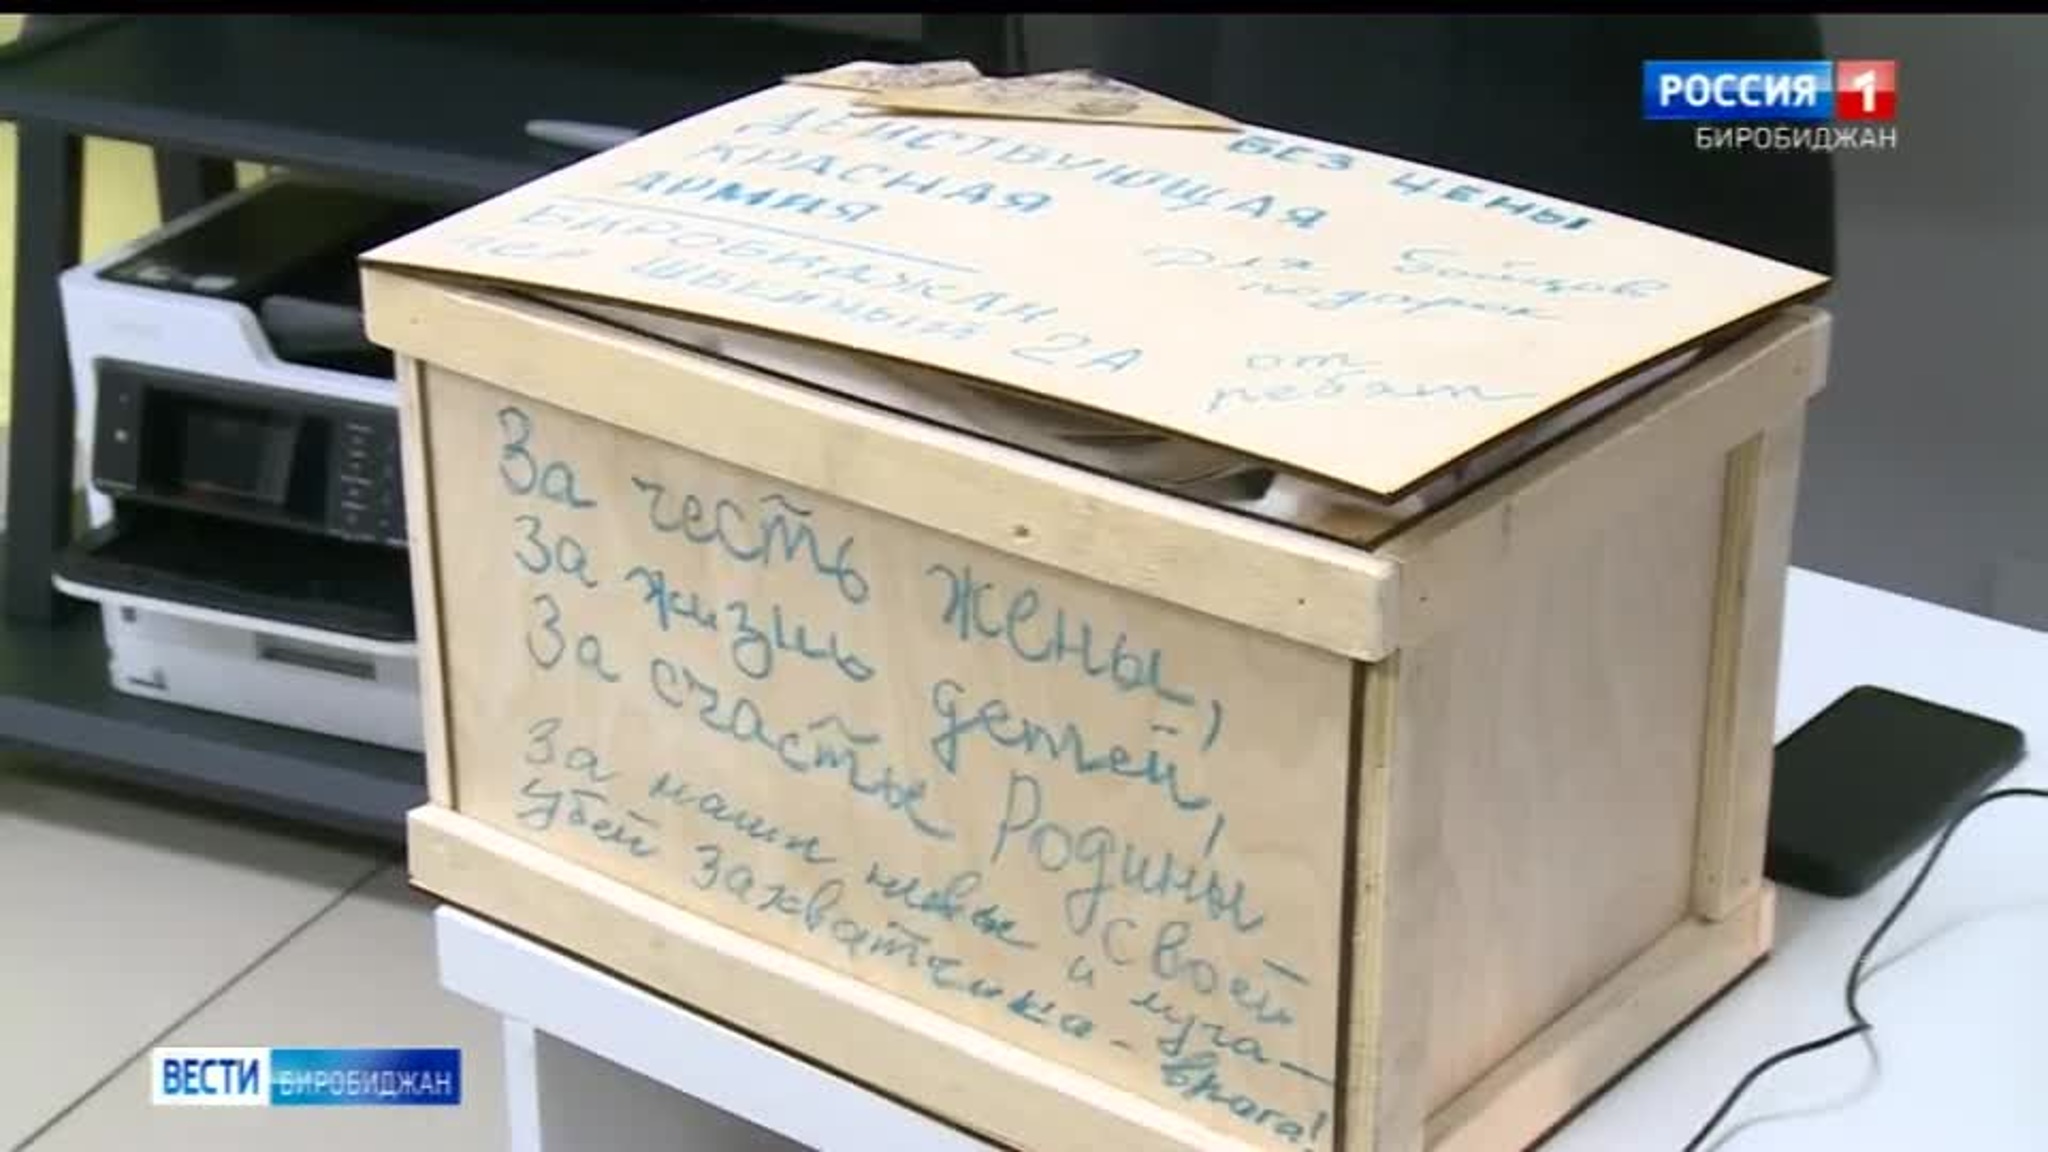 РОССИЯ 1
БИРОБИДЖАН
БЕЗ ЦЕНЫ
ДЕЙСТВУЮЩАЯ
КРАСНАЯ
АРМИЯ
БИРОБИДЖАН
ПЕР ШВЕЙНЫЙ 2А
Для бойцов
подарок
от
ребят
За честь жены,
За жизнь детей,
За счастье Родины своей
За наши нивы и луга-
Убей захватчика - врага!
ВЕСТИ БИРОБИДЖАН